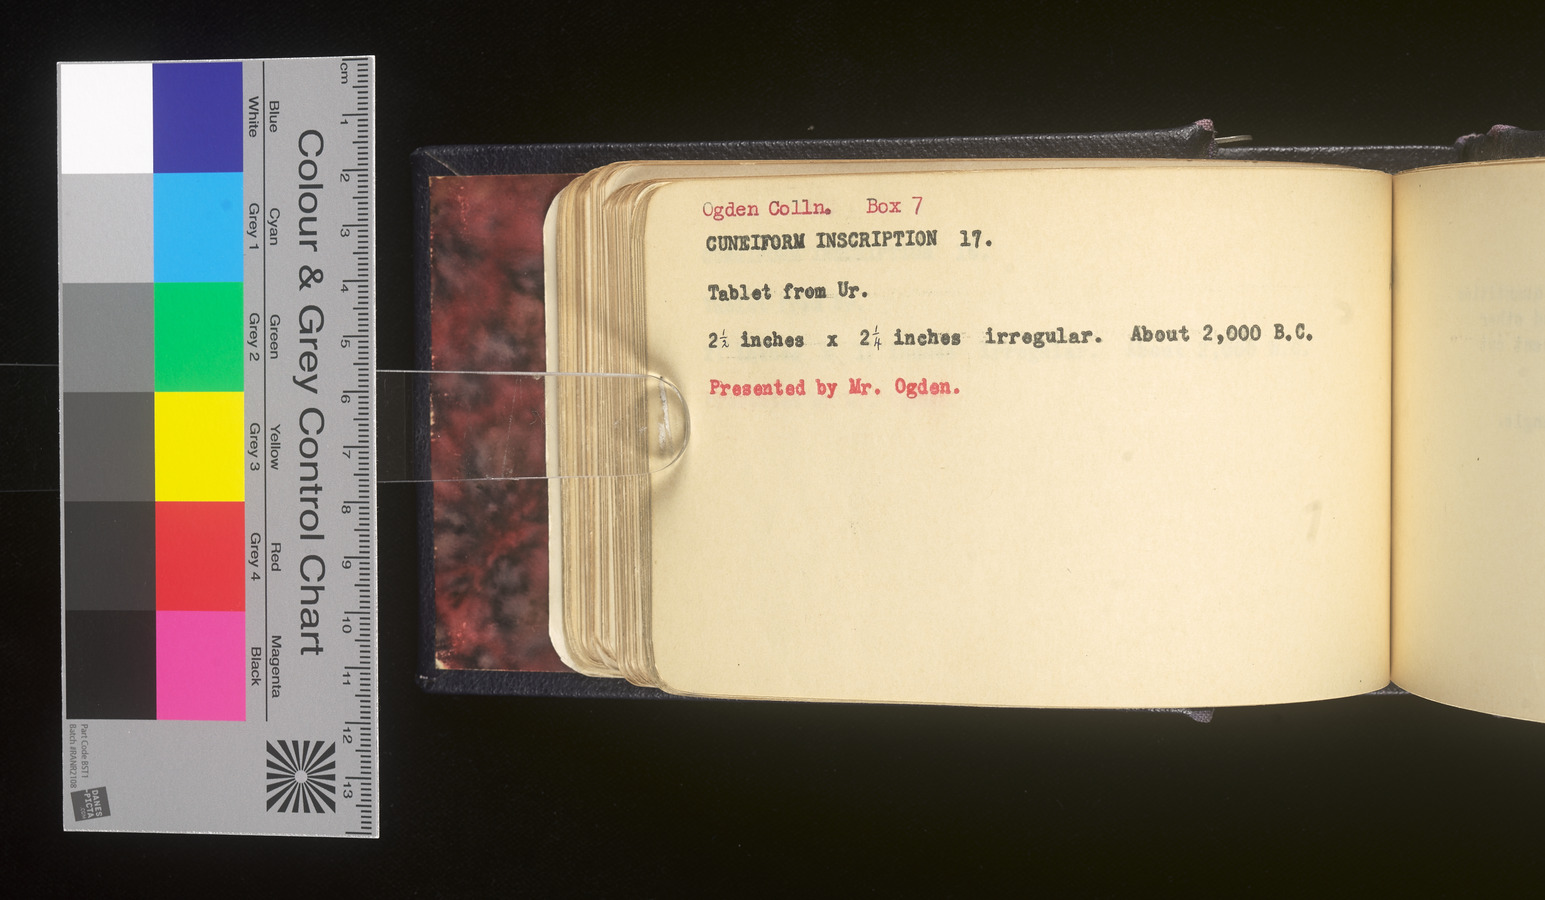 Ogden Colln. Box 7
CUNEIFORM INSCRIPTION 17.
Tablet from Ur.
2½ inches x 2¼ inches irregular. About 2,000 B.C.
Presented by Mr. Ogden.
Colour & Grey Control Chart
Blue Cyan Green Yellow Red Magenta
White Grey 1 Grey 2 Grey 3 Grey 4 Black
cm 1 2 3 4 5 6 7 8 9 10 11 12 13
Part Code BST1
Batch #RANR2108
DANES
-PICTA
.COM